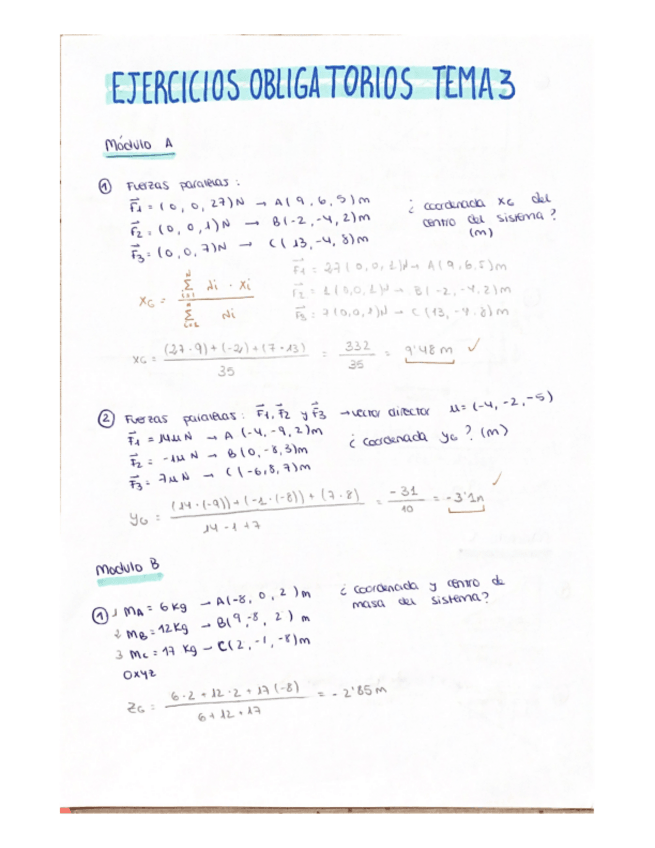 EJERCICIOS OBLIGATORIOS TEMA 3
Módulo A
① Fuerzas paralelas:
F1 = (0, 0, 27)N → A(9, 6, 5)m
F2 = (0, 0, 1)N → B(-2, -4, 2)m
F3 = (0, 0, 7)N → C(13, -4, 8)m
¿ coordenada XG del
centro del sistema?
(m)
F1 = 27(0, 0, 1)N → A(9, 6, 5)m
F2 = 1(0, 0, 1)N → B(-2, -4, 2)m
F3 = 7(0, 0, 1)N → C(13, -4, 8)m
XG = Σ λi · xi / Σ λi
XG = (27·9)+(-2)+(7·13) / 35 = 332 / 35 = 9'48 m ✓
② Fuerzas paralelas: F1, F2 y F3 → vector director μ = (-4, -2, -5)
F1 = 14μ N → A(-4, -9, 2)m
F2 = -1μ N → B(0, -8, 3)m
F3 = 7μ N → C(-6, 8, 7)m
¿ coordenada YG? (m)
YG = (14·(-9))+(-1·(-8))+(7·8) / 14-1+7 = -31 / 10 = -3'1m ✓
Modulo B
① 1 MA = 6 Kg → A(-8, 0, 2)m
2 MB = 12 Kg → B(9, -8, 2) m
3 MC = 17 Kg → C(2, -1, -8)m
OXYZ
¿ Coordenada y centro de
masa del sistema?
ZG = 6·2+12·2+17(-8) / 6+12+17 = -2'85 m